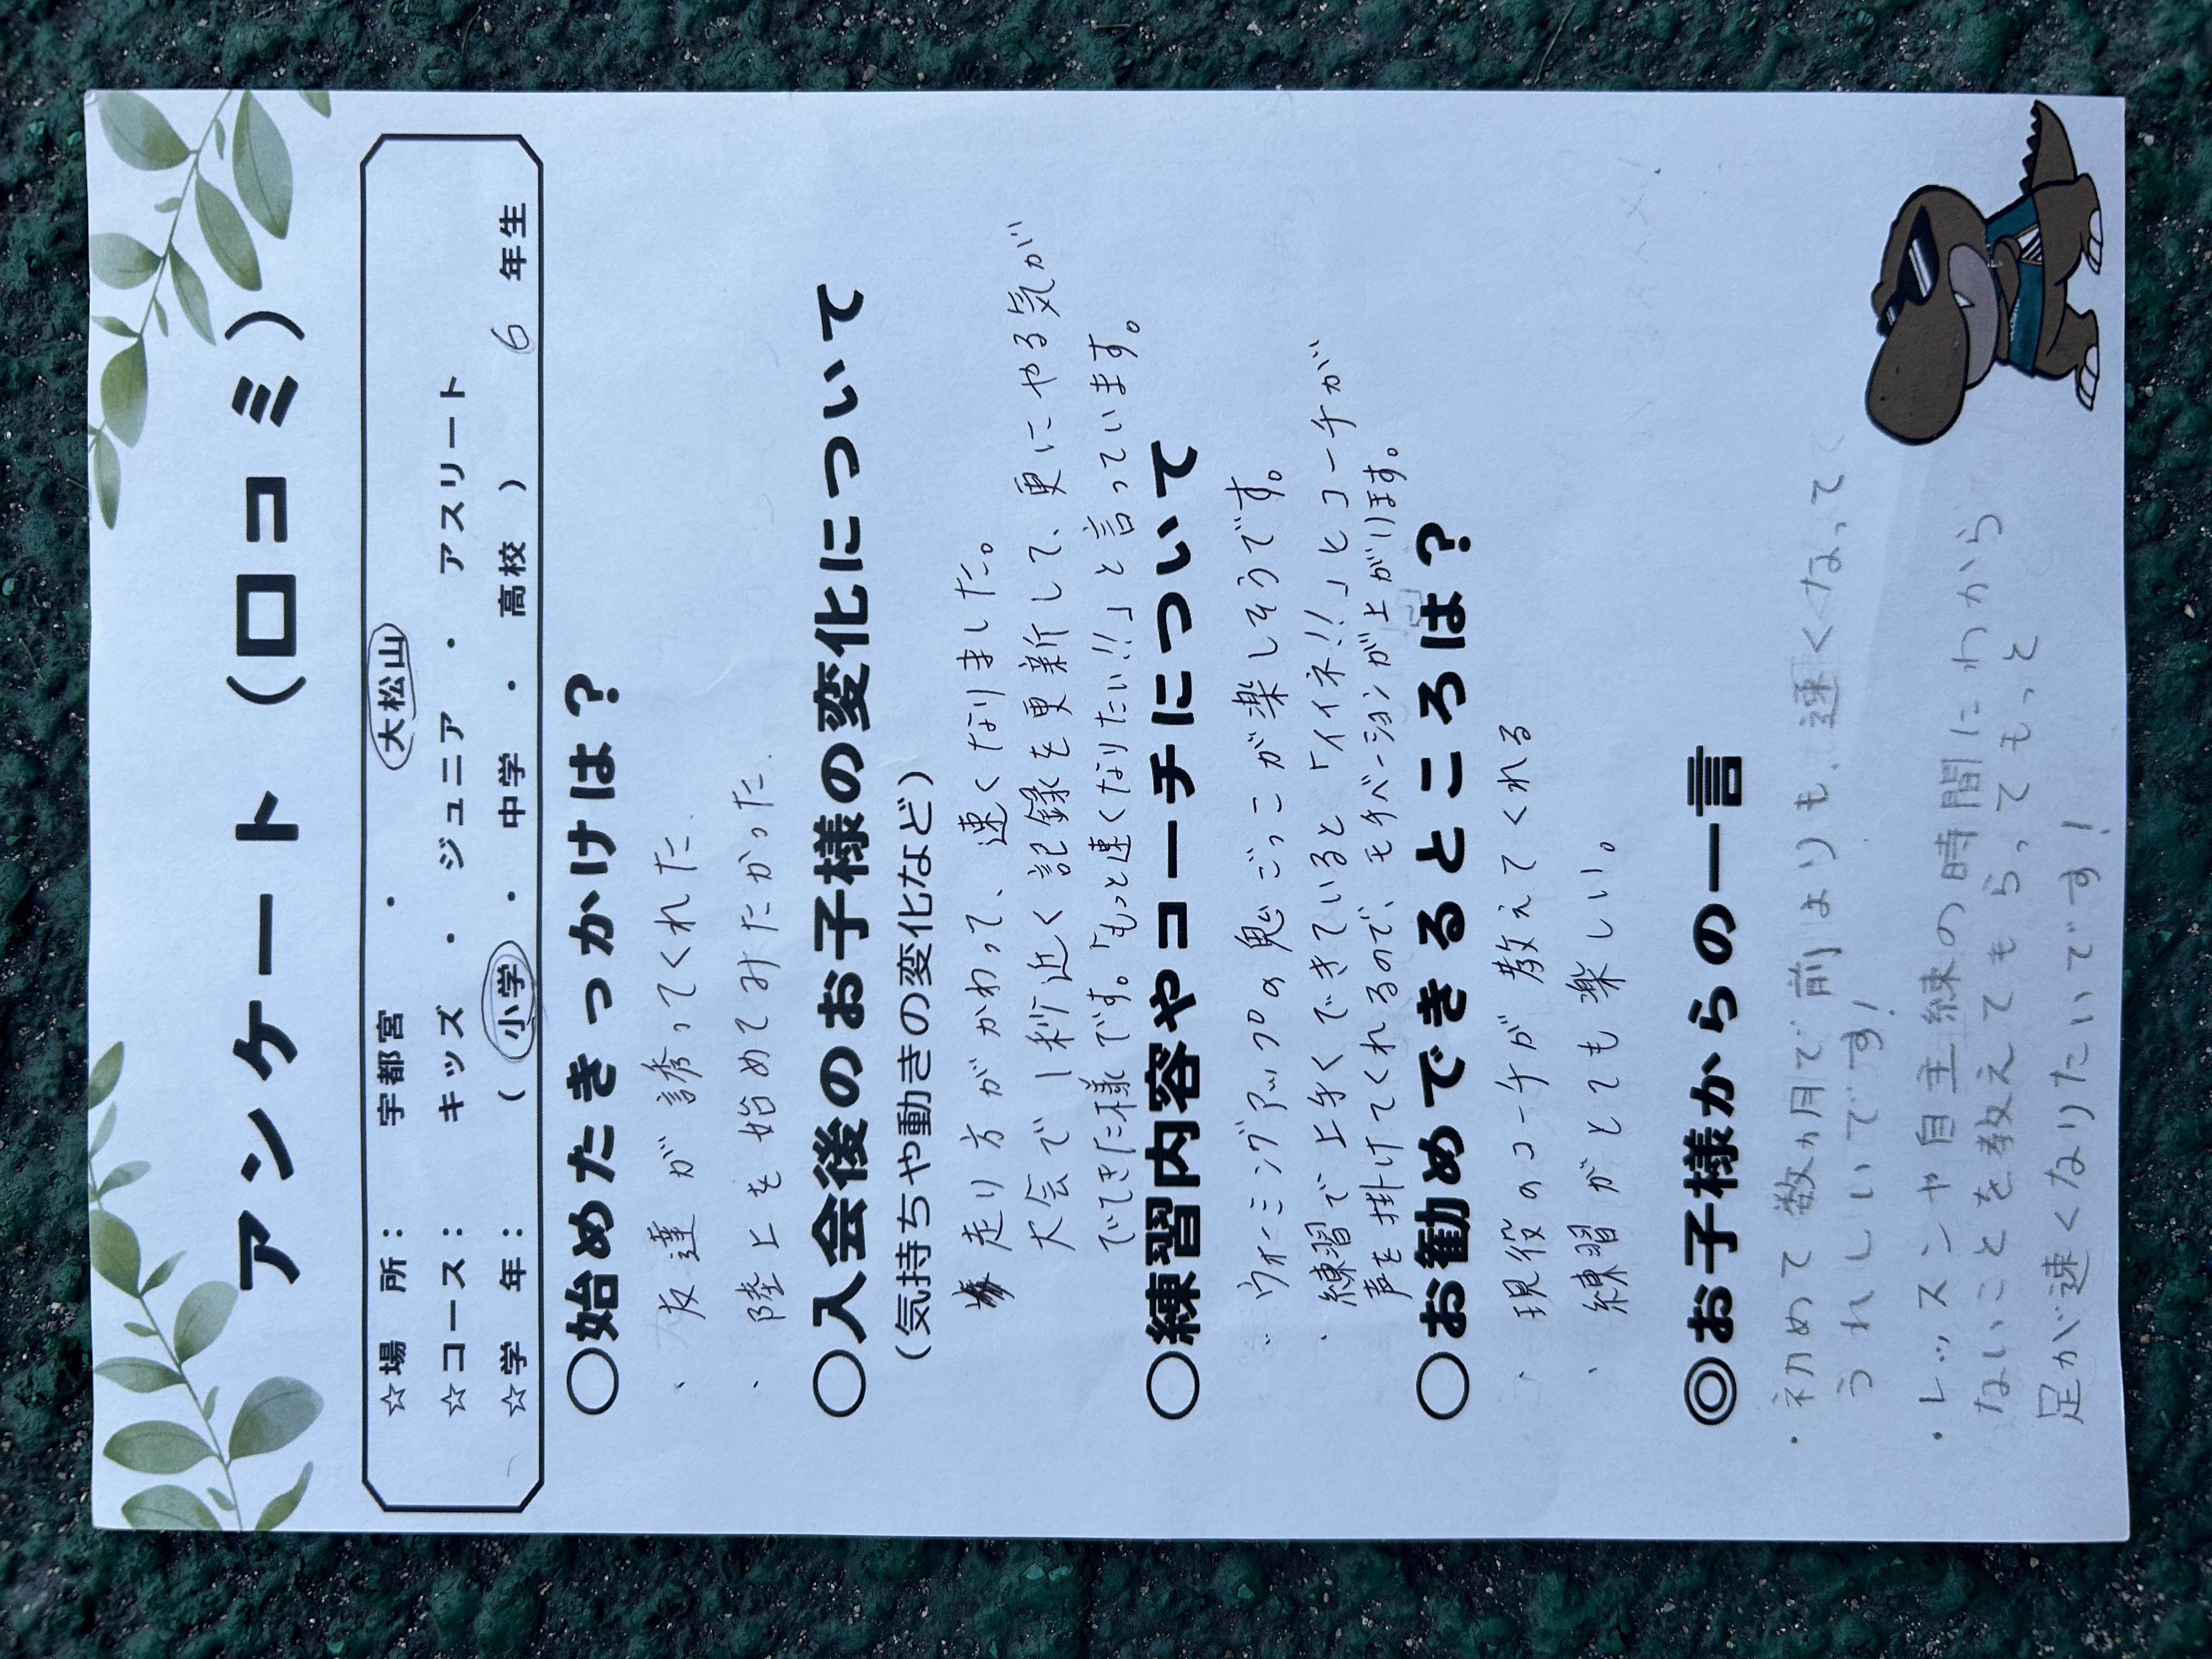 アンケート（口コミ）
☆場 所： 宇都宮 ・ 大松山
☆コース： キッズ ・ ジュニア ・ アスリート
☆学 年： （ 小学 ・ 中学 ・ 高校 ） 6 年生
○始めたきっかけは？
・友達が誘ってくれた.
・陸上を始めてみたかった.
○入会後のお子様の変化について
（気持ちや動きの変化など）
走り方がかわって、速くなりました。
大会で1秒近く記録を更新して、更にやる気が
でてきた様です。「もっと速くなりたい!!」と言っています。
○練習内容やコーチについて
・ウォーミングアップの鬼ごっこが楽しそうです。
・練習で上手くできていると「イイネ!!」とコーチが
声を掛けてくれるので、モチベーションが上がります。
○お勧めできるところは？
・現役のコーチが教えてくれる
・練習がとても楽しい。
◎お子様からの一言
・初めて数ヵ月で前よりも、速くなって
うれしいです!
・レッスンや自主練の時間にわから
ないことを教えてもらってもっと
足が速くなりたいです!